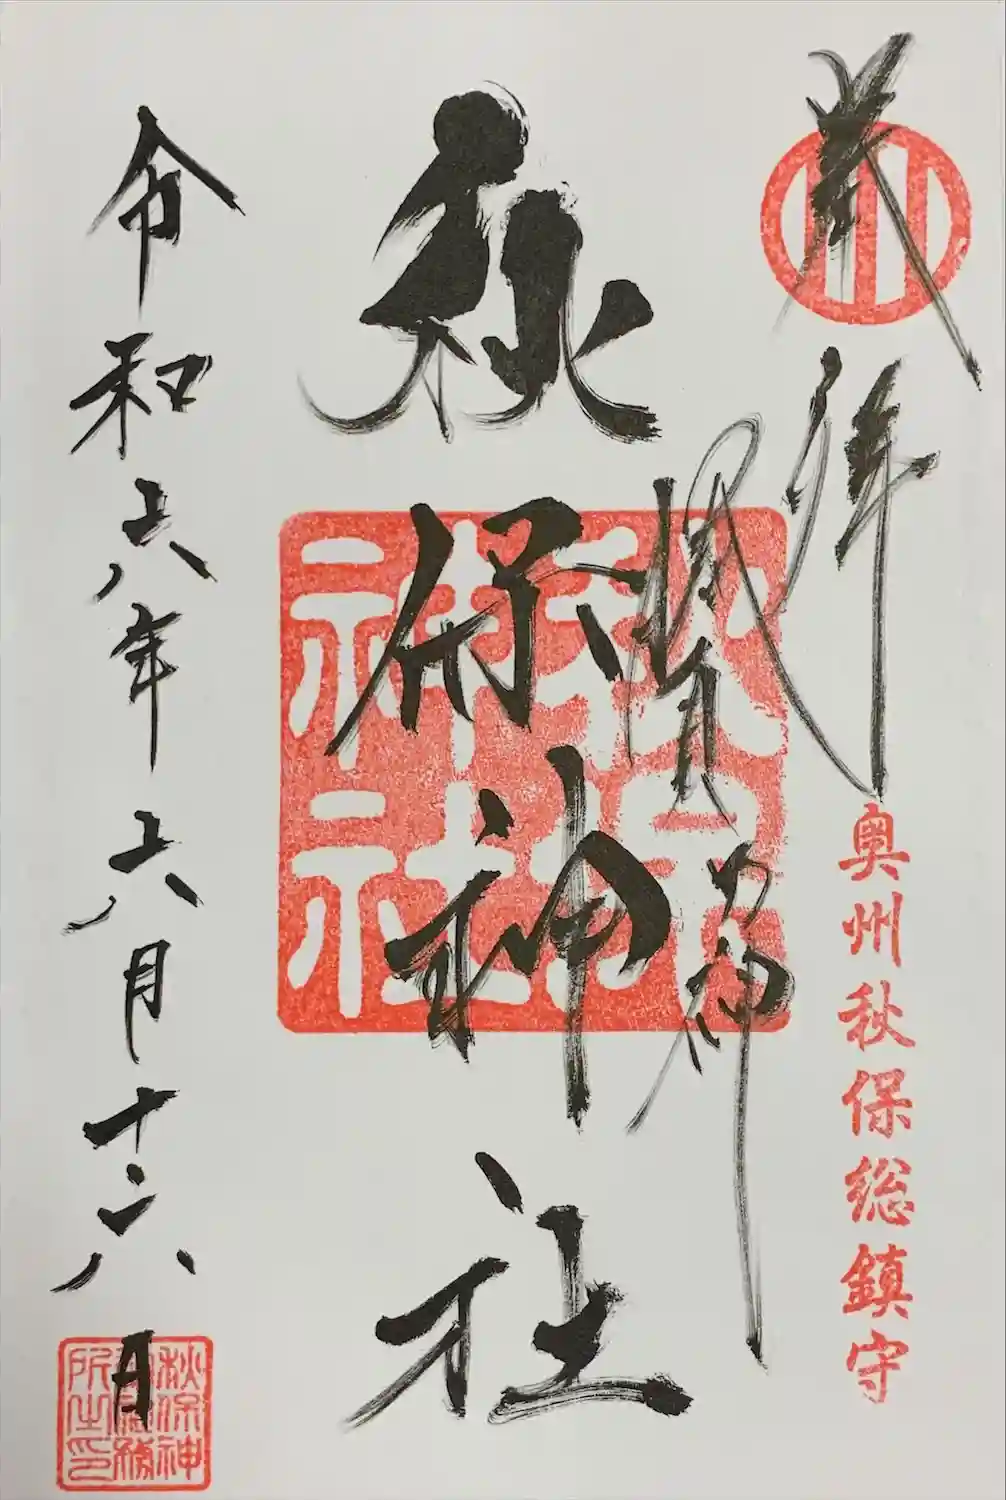 奉拝
奥州秋保総鎮守
秋保神社
秋保
神社
令和六年六月十六日
秋保神
社社務
所之印